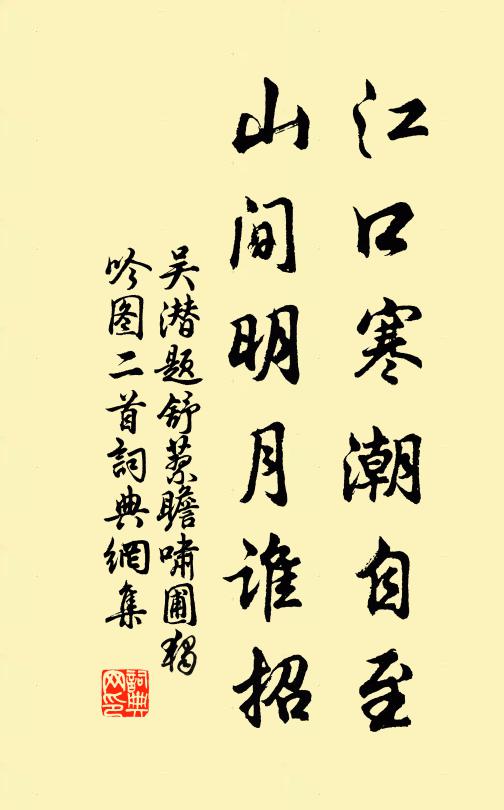 江口寒潮自至
山间明月谁招
吴潜题舒蓼瞻啸圃独
吟图二首詞典網集
詞典网印